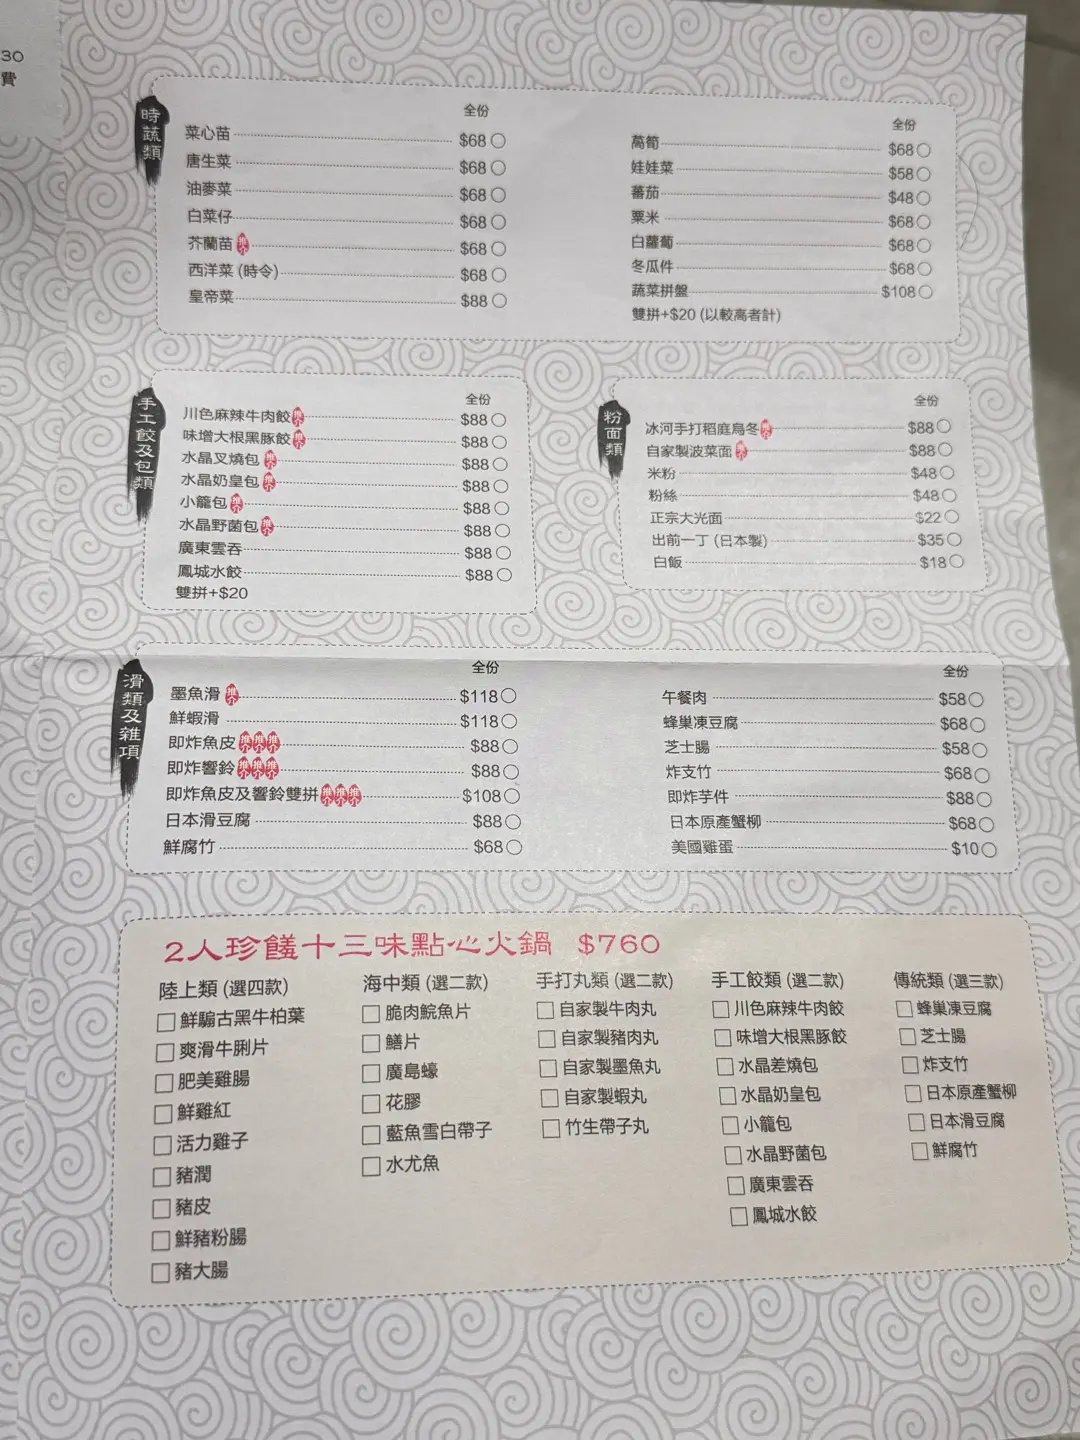 30
費
時蔬類
全份
菜心苗 $68
唐生菜 $68
油麥菜 $68
白菜仔 $68
芥蘭苗 推介 $68
西洋菜 (時令) $68
皇帝菜 $88
全份
萵筍 $68
娃娃菜 $58
蕃茄 $48
粟米 $68
白蘿蔔 $68
冬瓜件 $68
蔬菜拼盤 $108
雙拼+$20 (以較高者計)
手工餃及包類
全份
川色麻辣牛肉餃 推介 $88
味增大根黑豚餃 推介 $88
水晶叉燒包 推介 $88
水晶奶皇包 推介 $88
小籠包 推介 $88
水晶野菌包 推介 $88
廣東雲吞 $88
鳳城水餃 $88
雙拼+$20
粉面類
全份
冰河手打稻庭烏冬 推介 $88
自家製波菜面 推介 $88
米粉 $48
粉絲 $48
正宗大光面 $22
出前一丁 (日本製) $35
白飯 $18
滑類及雜項
全份
墨魚滑 推介 $118
鮮蝦滑 $118
即炸魚皮 推介 推介 推介 $88
即炸響鈴 推介 推介 推介 $88
即炸魚皮及響鈴雙拼 推介 推介 推介 $108
日本滑豆腐 $88
鮮腐竹 $68
全份
午餐肉 $58
蜂巢凍豆腐 $68
芝士腸 $58
炸支竹 $68
即炸芋件 $88
日本原產蟹柳 $68
美國雞蛋 $10
2人珍饈十三味點心火鍋 $760
陸上類 (選四款)
鮮騸古黑牛柏葉
爽滑牛脷片
肥美雞腸
鮮雞紅
活力雞子
豬潤
豬皮
鮮豬粉腸
豬大腸
海中類 (選二款)
脆肉鯇魚片
鱔片
廣島蠔
花膠
藍魚雪白帶子
水尤魚
手打丸類 (選二款)
自家製牛肉丸
自家製豬肉丸
自家製墨魚丸
自家製蝦丸
竹生帶子丸
手工餃類 (選二款)
川色麻辣牛肉餃
味增大根黑豚餃
水晶差燒包
水晶奶皇包
小籠包
水晶野菌包
廣東雲吞
鳳城水餃
傳統類 (選三款)
蜂巢凍豆腐
芝士腸
炸支竹
日本原產蟹柳
日本滑豆腐
鮮腐竹